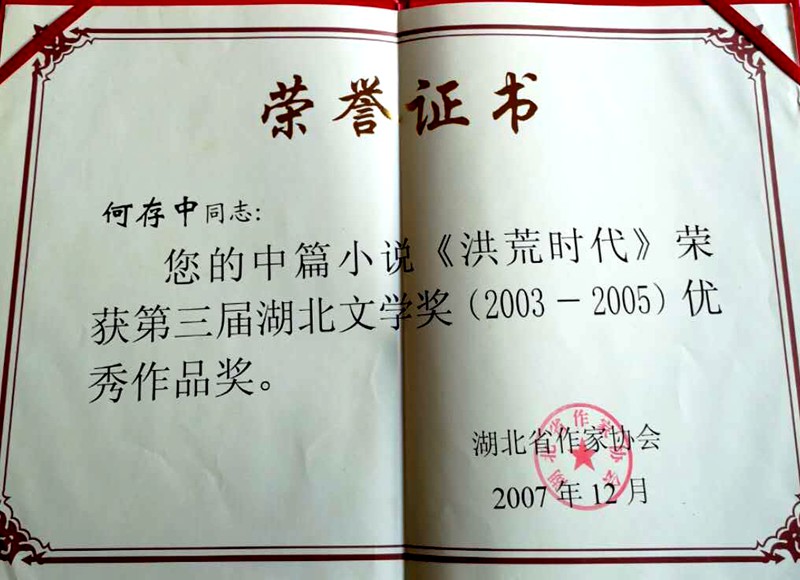 荣誉证书
何存中同志:
您的中篇小说《洪荒时代》荣
获第三届湖北文学奖(2003－2005)优
秀作品奖。
湖北省作家协会
湖北省作家协会
2007年12月